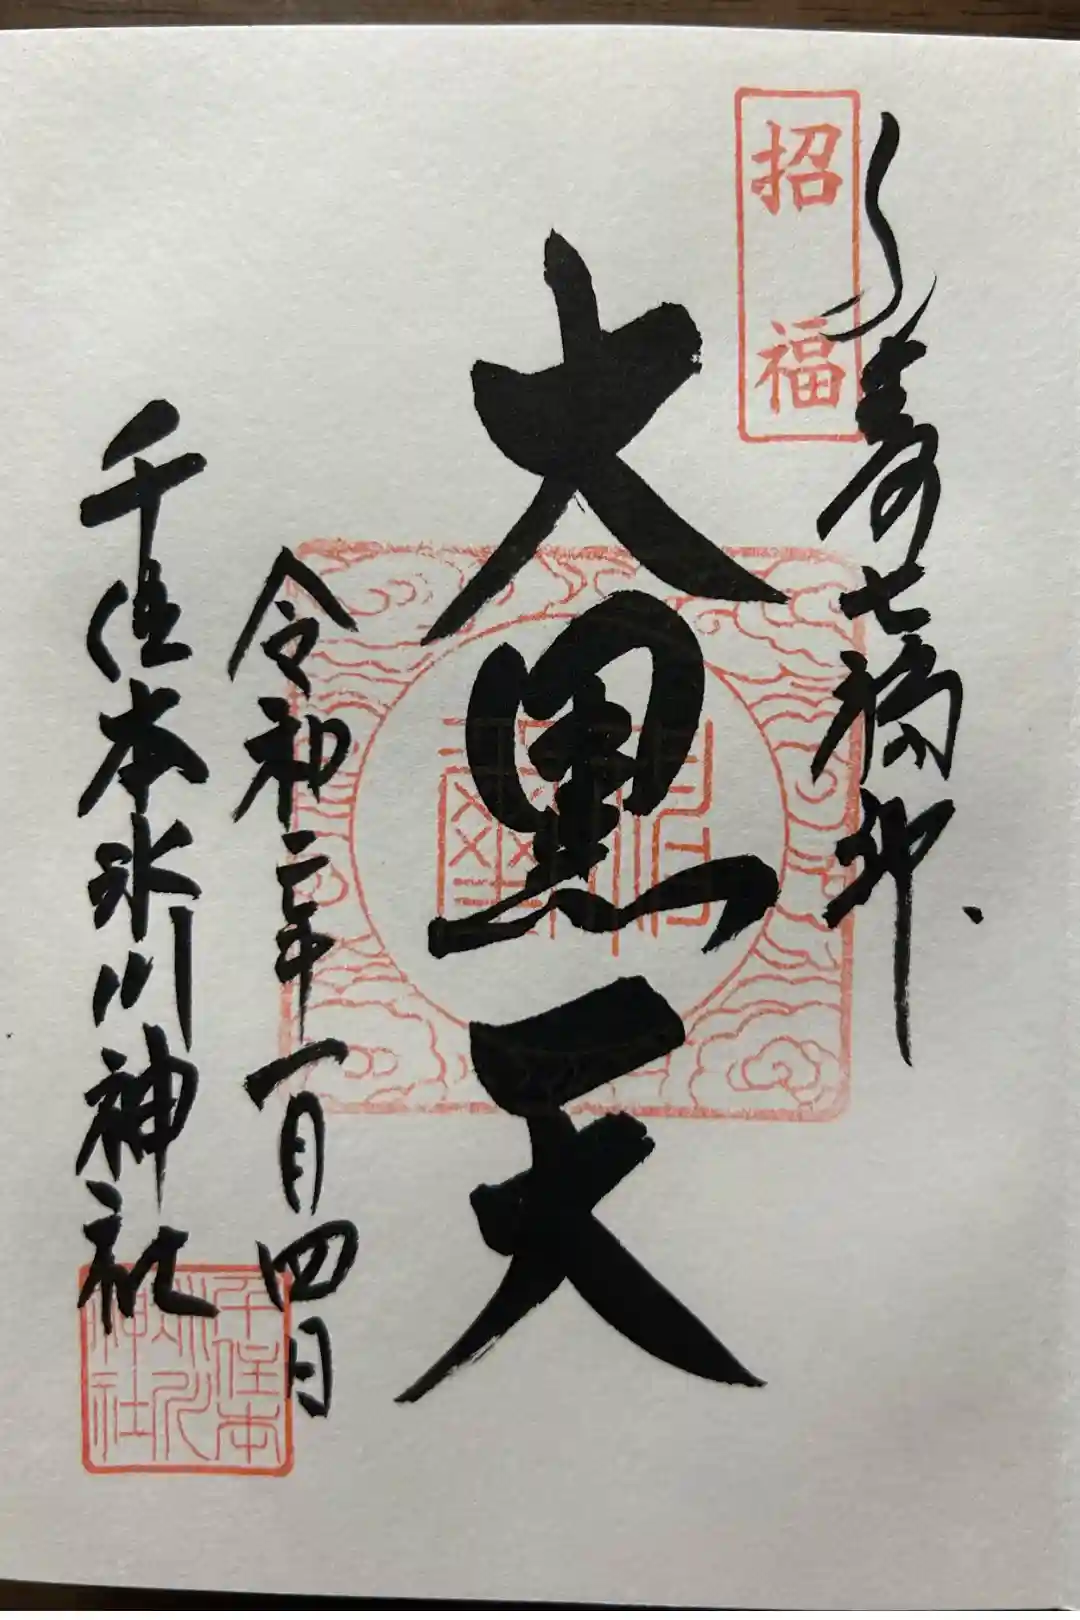 招福
千寿七福神
大黒天
令和二年一月四日
千住本氷川神社
千住本
氷川
神社